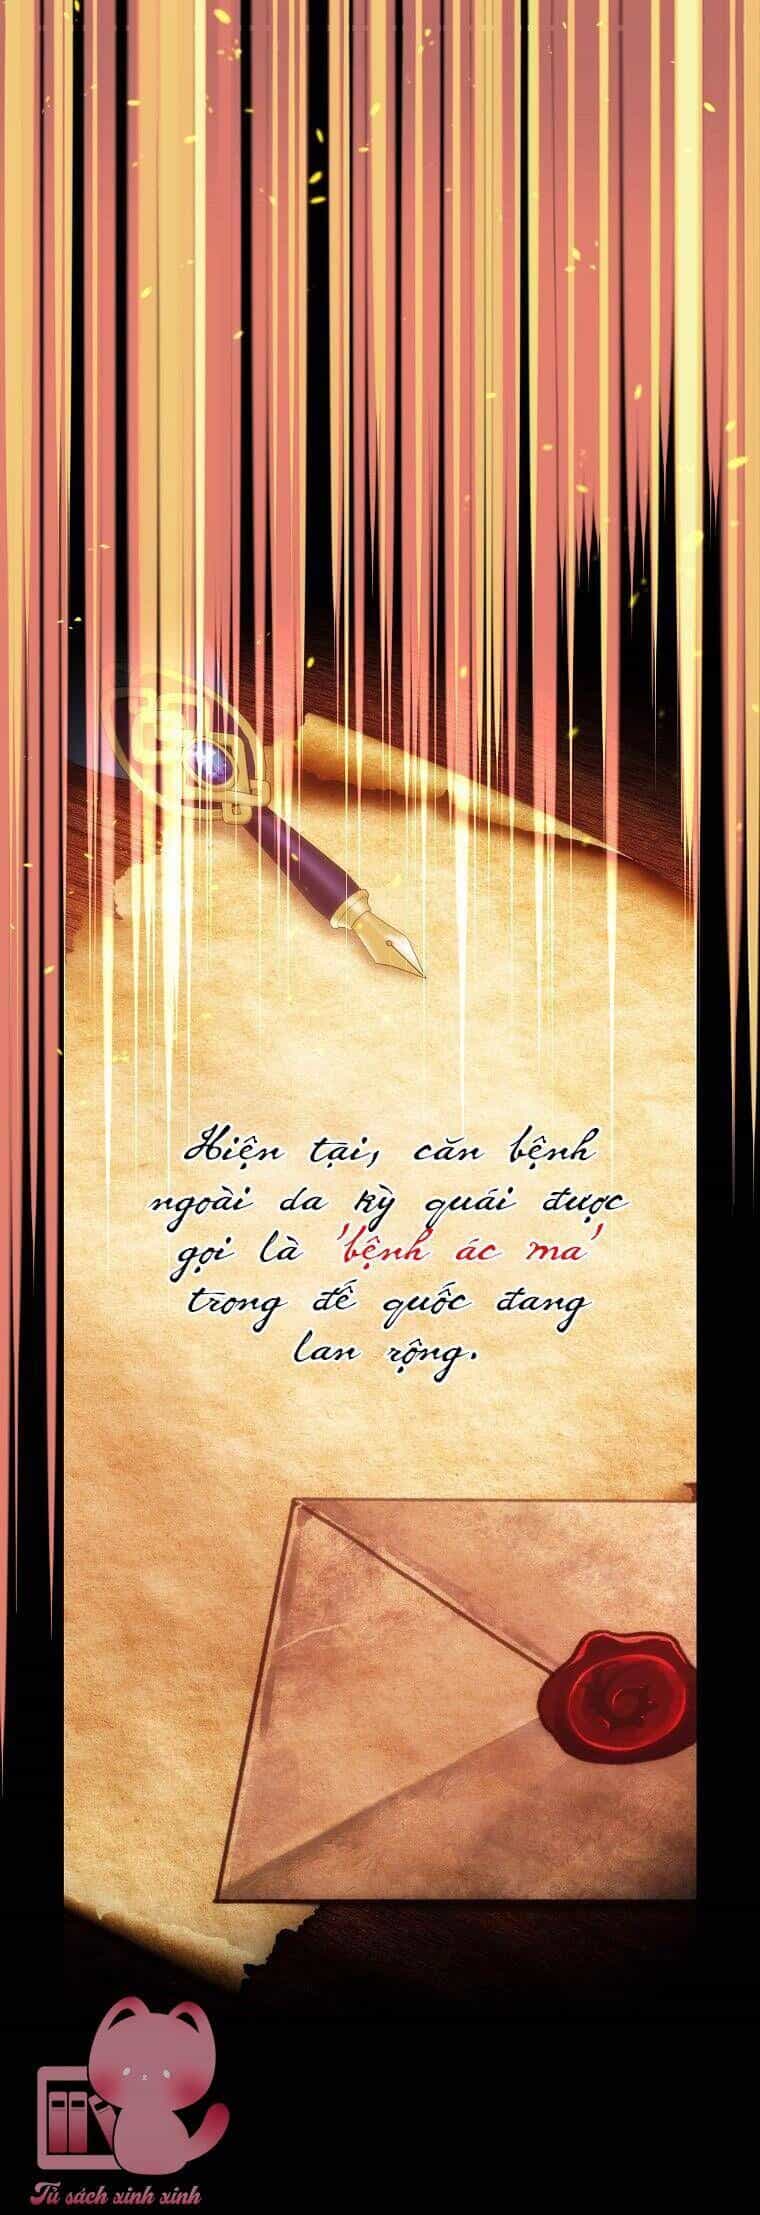 Hiện tại, căn bệnh
ngoài da kỳ quái được
gọi là 'bệnh ác ma'
trong đế quốc đang
lan rộng.
Tủ sách xinh xinh